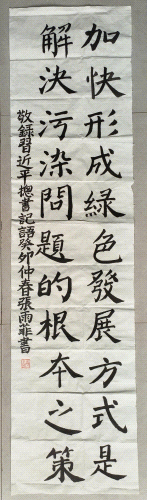 加快形成綠色發展方式是
解決污染問題的根本之策
敬錄習近平總書記語癸卯仲春張雨菲書